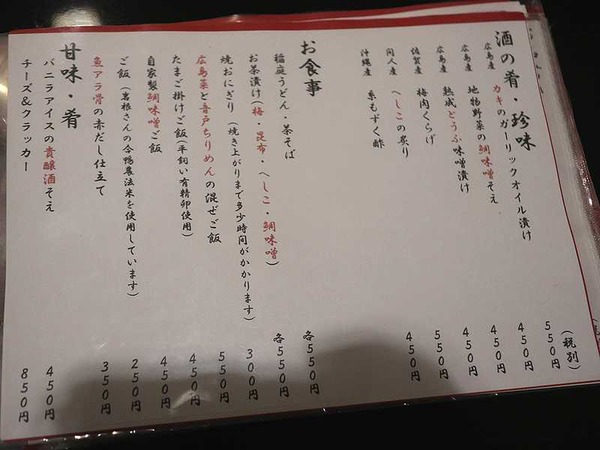 酒の肴・珍味
(税別)
広島産 カキのガーリックオイル漬け 550円
広島産 地物野菜の鯛味噌そえ 450円
広島産 熟成とうふ味噌漬け 450円
佐賀産 梅肉くらげ 450円
間人産 へしこの炙り 550円
沖縄産 糸もずく酢 450円
お食事
稲庭うどん・茶そば 各550円
お茶漬け(梅・昆布・へしこ・鯛味噌) 各550円
焼おにぎり(焼き上がりまで多少時間がかかります) 300円
広島菜と音戸ちりめんの混ぜご飯 550円
たまご掛けご飯(平飼い有精卵使用) 450円
自家製鯛味噌ご飯 450円
ご飯(葛根さんの合鴨農法米を使用しています) 250円
魚アラ骨の赤だし仕立て 350円
甘味・肴
バニラアイスの貴醸酒そえ 450円
チーズ&クラッカー 850円